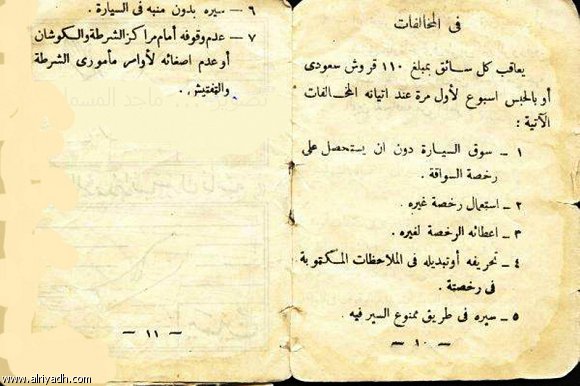 فى المخالفات
يعاقب كل سائق بمبلغ ١١٠ قروش سعودى
أو بالحبس اسبوع لأول مرة عند اتيانه المخالفات
الآتية :
١ – سوق السيارة دون ان يستحصل على
رخصة السواقة .
٢ – استعمال رخصة غيره .
٣ – اعطائه الرخصة لغيره .
٤ – تحريفه أو تبديله فى الملاحظات المكتوبة
فى رخصتة .
٥ – سيره فى طريق ممنوع السير فيه .
– ١٠ –
٦ – سيره بدون منبه فى السيارة .
٧ – عدم وقوفه أمام مراكز الشرطة والكوشان
أو عدم اصغائه لأوامر مأمورى الشرطة
والتفتيش .
– ١١ –
www.alriyadh.com